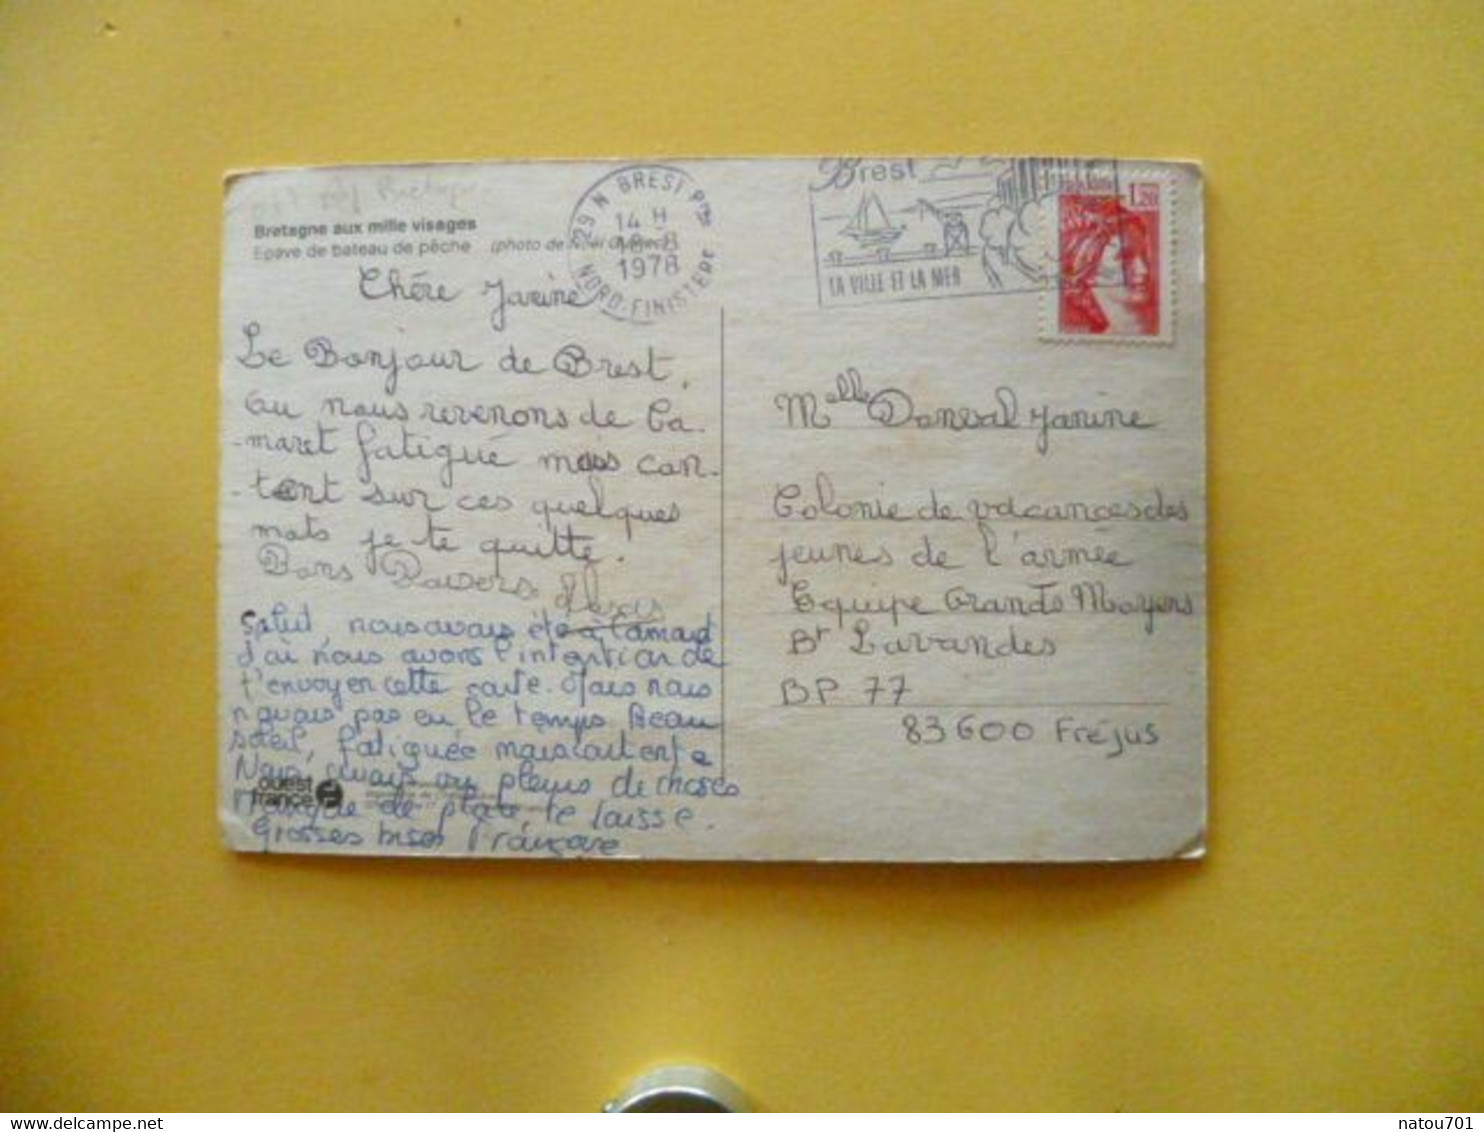 Bretagne aux mille visages
Epave de bateau de pêche (photo de
29 N BREST Ppal
14 H
18-8
1978
NORD-FINISTERE
Brest
LA VILLE ET LA MER
1,20
Chère Janine
Le Bonjour de Brest,
Ou nous revenons de Ca-
-maret fatigué mais con-
-tent sur ces quelques
mots je te quitte.
Bons Baisers
Salut, nous avons été à Camaret
d'ai nous avons l'intention de
t'envoyer cette carte. Mais nous
n'avons pas eu le temps Beau
soleil, fatiguée mais contente
Nous avons vu pleins de choses
Manque de place, te laisse.
Grosses bises Françoise
ouest
france
Melle Donval Janine
Colonie de vacances des
jeunes de l'armée
Equipe Grands Moyens
Bt Lavandes
BP 77
83600 Fréjus
natou701